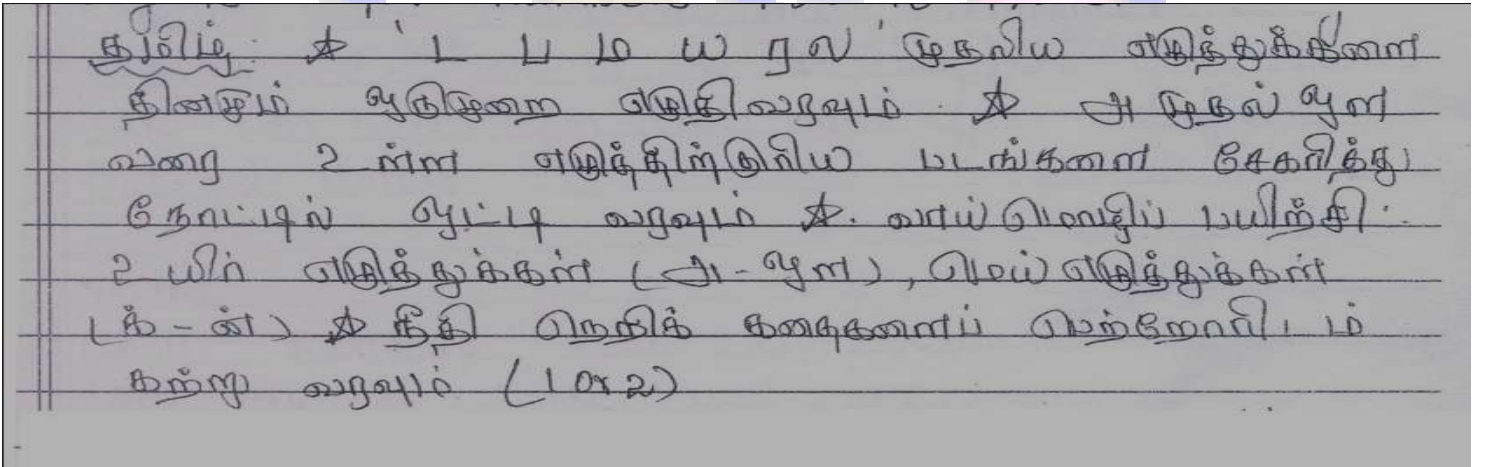 தமிழ்: ☆ 'ட ப ம ய ர ல' முதலிய எழுத்துக்களை
தினமும் ஒருமுறை எழுதிவரவும். ☆ அ முதல் ஔ
வரை உள்ள எழுத்திற்குரிய படங்களை சேகரித்து
நோட்டில் ஒட்டி வரவும் ☆. வாய்மொழிப் பயிற்சி:
உயிர் எழுத்துக்கள் (அ - ஔ), மெய் எழுத்துக்கள்
(க் - ன்) ☆ நீதி நெறிக் கதைகளைப் பெற்றோரிடம்
கற்று வரவும் (1 or 2)